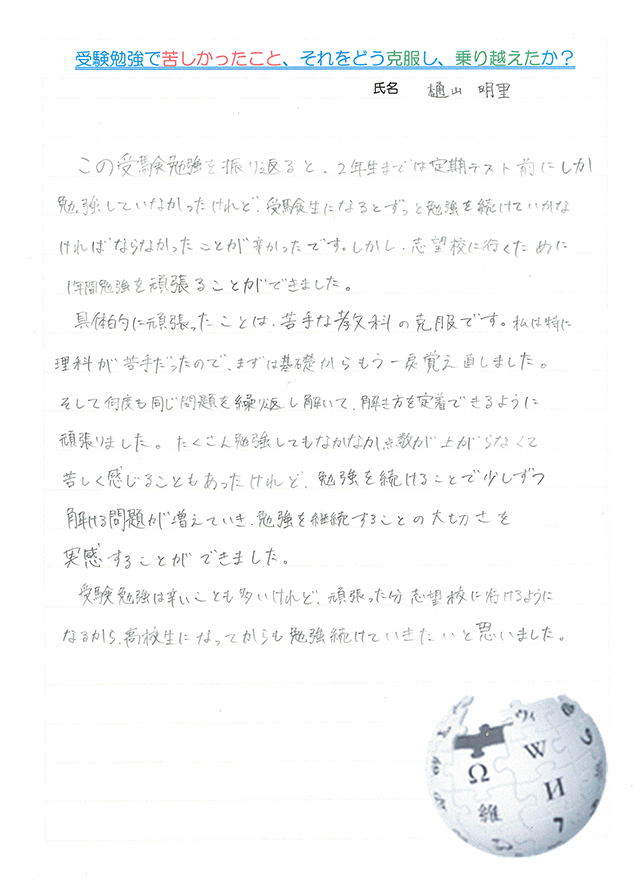 受験勉強で苦しかったこと、それをどう克服し、乗り越えたか？
氏名 樋山 明里
この受験勉強を振り返ると、2年生までは定期テスト前にしか
勉強していなかったけれど、受験生になるとずっと勉強を続けていかな
ければならなかったことが辛かったです。しかし、志望校に行くために
1年間勉強を頑張ることができました。
具体的に頑張ったことは、苦手な教科の克服です。私は特に
理科が苦手だったので、まずは基礎からもう一度覚え直しました。
そして何度も同じ問題を繰り返し解いて、解き方を定着できるように
頑張りました。たくさん勉強してもなかなか点数が上がらなくて
苦しく感じることもあったけれど、勉強を続けることで少しずつ
解ける問題が増えていき、勉強を継続することの大切さを
実感することができました。
受験勉強は辛いことも多いけれど、頑張った分志望校に行けるように
なるから、高校生になってからも勉強続けていきたいと思いました。
ウィ
W
Ω
И
維